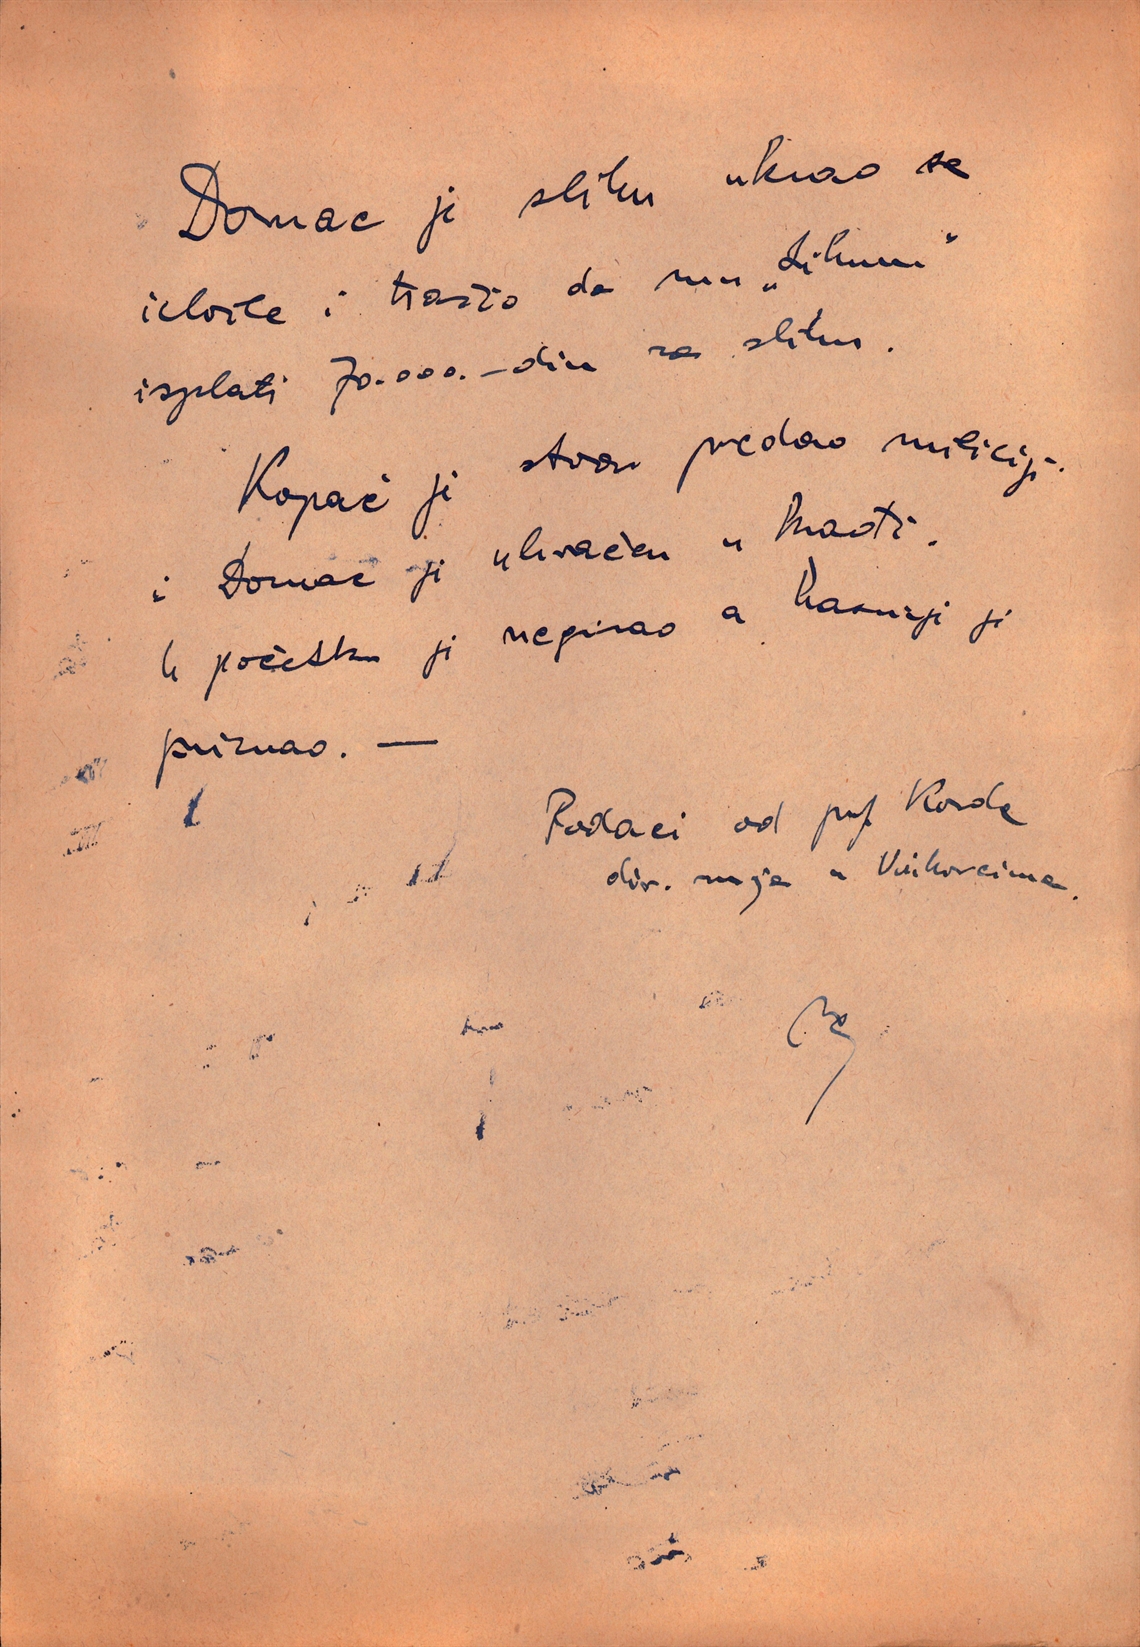 Domac je sliku ukrao sa
izložbe i tražio da mu „Likum"
isplati 70.000.– din za sliku.
Kopač je stvar predao miliciji.
i Domac je uhvaćen u krađi.
U početku je negirao a kasnije je
priznao. —
Podaci od prof Korde
dir. muzeja u Vinkovcima.